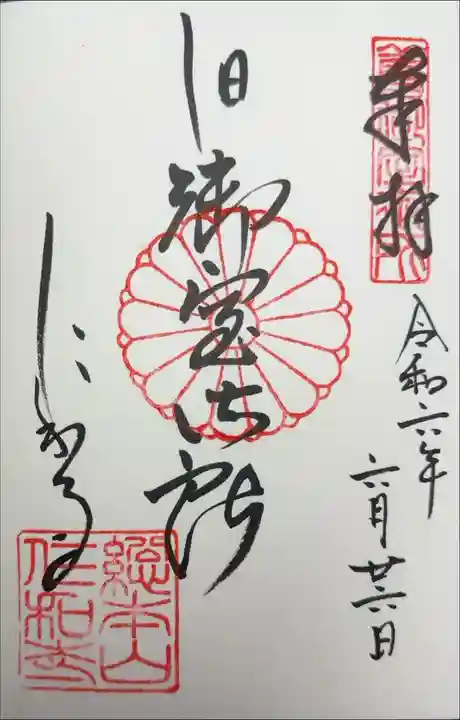 奉拝
令和六年
六月廿六日
旧御室御所
仁和寺
總本山
仁和寺